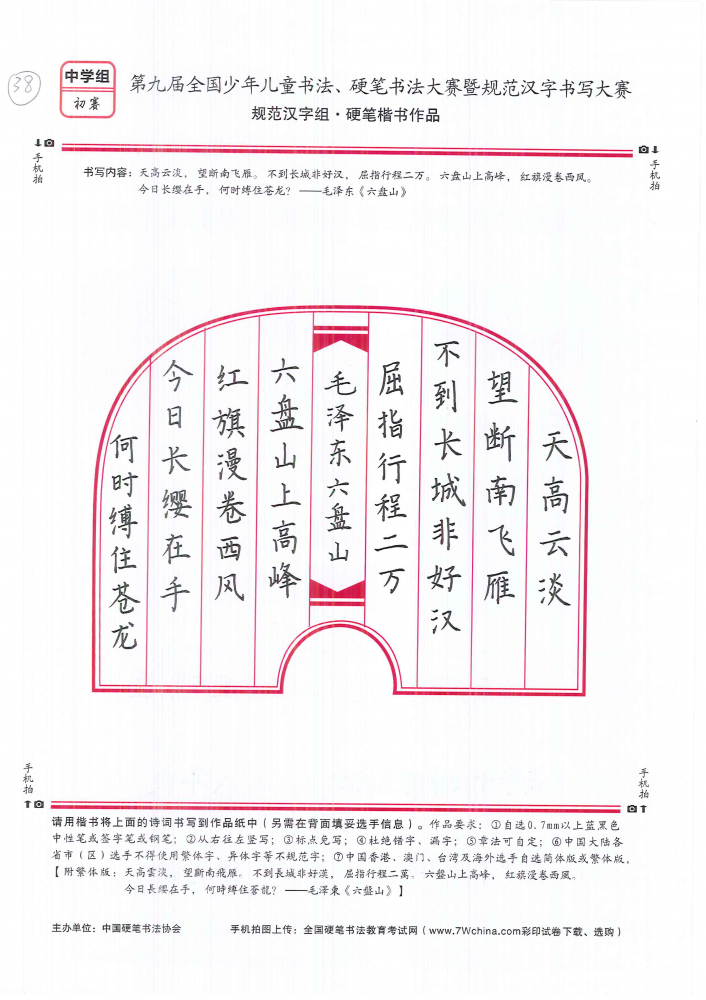 38
中学组
初赛
第九届全国少年儿童书法、硬笔书法大赛暨规范汉字书写大赛
规范汉字组·硬笔楷书作品
手机拍
手机拍
书写内容：天高云淡，望断南飞雁。不到长城非好汉，屈指行程二万。六盘山上高峰，红旗漫卷西风。
今日长缨在手，何时缚住苍龙？——毛泽东《六盘山》
天高云淡
望断南飞雁
不到长城非好汉
屈指行程二万
毛泽东六盘山
六盘山上高峰
红旗漫卷西风
今日长缨在手
何时缚住苍龙
手机拍
手机拍
请用楷书将上面的诗词书写到作品纸中（另需在背面填妥选手信息）。作品要求：①自选0.7mm以上蓝黑色
中性笔或签字笔或钢笔；②从右往左竖写；③标点免写；④杜绝错字、漏字；⑤章法可自定；⑥中国大陆各
省市（区）选手不得使用繁体字、异体字等不规范字；⑦中国香港、澳门、台湾及海外选手自选简体版或繁体版，
【附繁体版：天高雲淡，望斷南飛雁。不到長城非好漢，屈指行程二萬。六盤山上高峰，紅旗漫卷西風。
今日長纓在手，何時縛住蒼龍？——毛澤東《六盤山》】
主办单位：中国硬笔书法协会
手机拍图上传：全国硬笔书法教育考试网（www.7Wchina.com彩印试卷下载、选购）